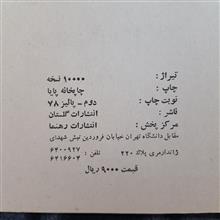 تیراژ : ۱۰۰۰۰ نسخه
چاپ : چاپخانه پایا
نوبت چاپ : دوم - پائیز ۷۸
ناشر : انتشارات گلستان
مرکز پخش : انتشارات رهنما
مقابل دانشگاه تهران خیابان فروردین نبش شهدای
ژاندارمری پلاک ۲۲۰ تلفن : ۶۴۰۰۹۲۷
۶۴۱۶۶۰۴
قیمت ۹۰۰۰ ریال